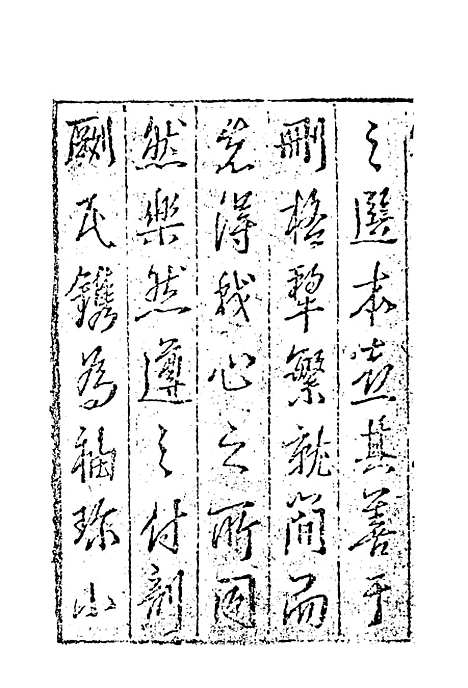 之選本意其善于
刪掇犂繁就簡而
若得我心之所同
然樂然遵之付剞
劂氏鐫為袖珍小